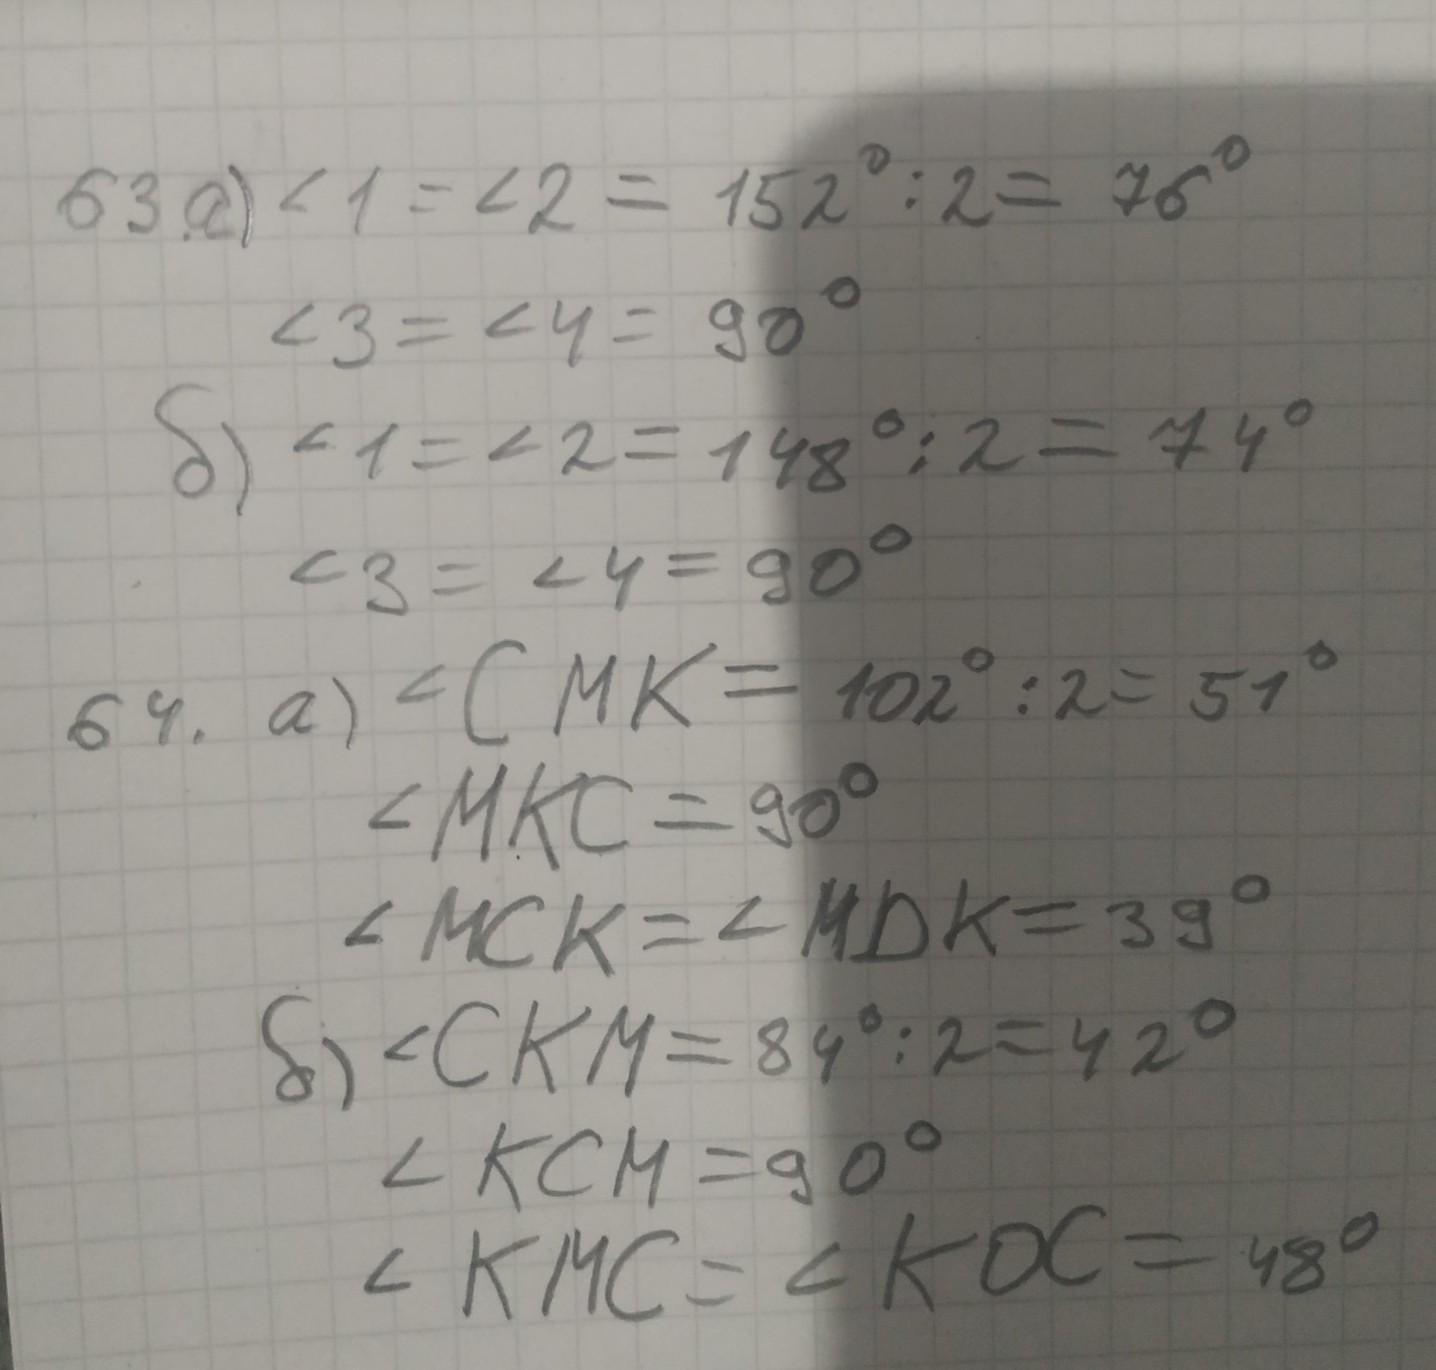 63.а) <1 = <2 = 152° : 2 = 76°
<3 = <4 = 90°
б) <1 = <2 = 148° : 2 = 74°
<3 = <4 = 90°
64. а) <CMK = 102° : 2 = 51°
<MKC = 90°
<MCK = <MDK = 39°
б) <CKM = 84° : 2 = 42°
<KCM = 90°
<KMC = <KDC = 48°